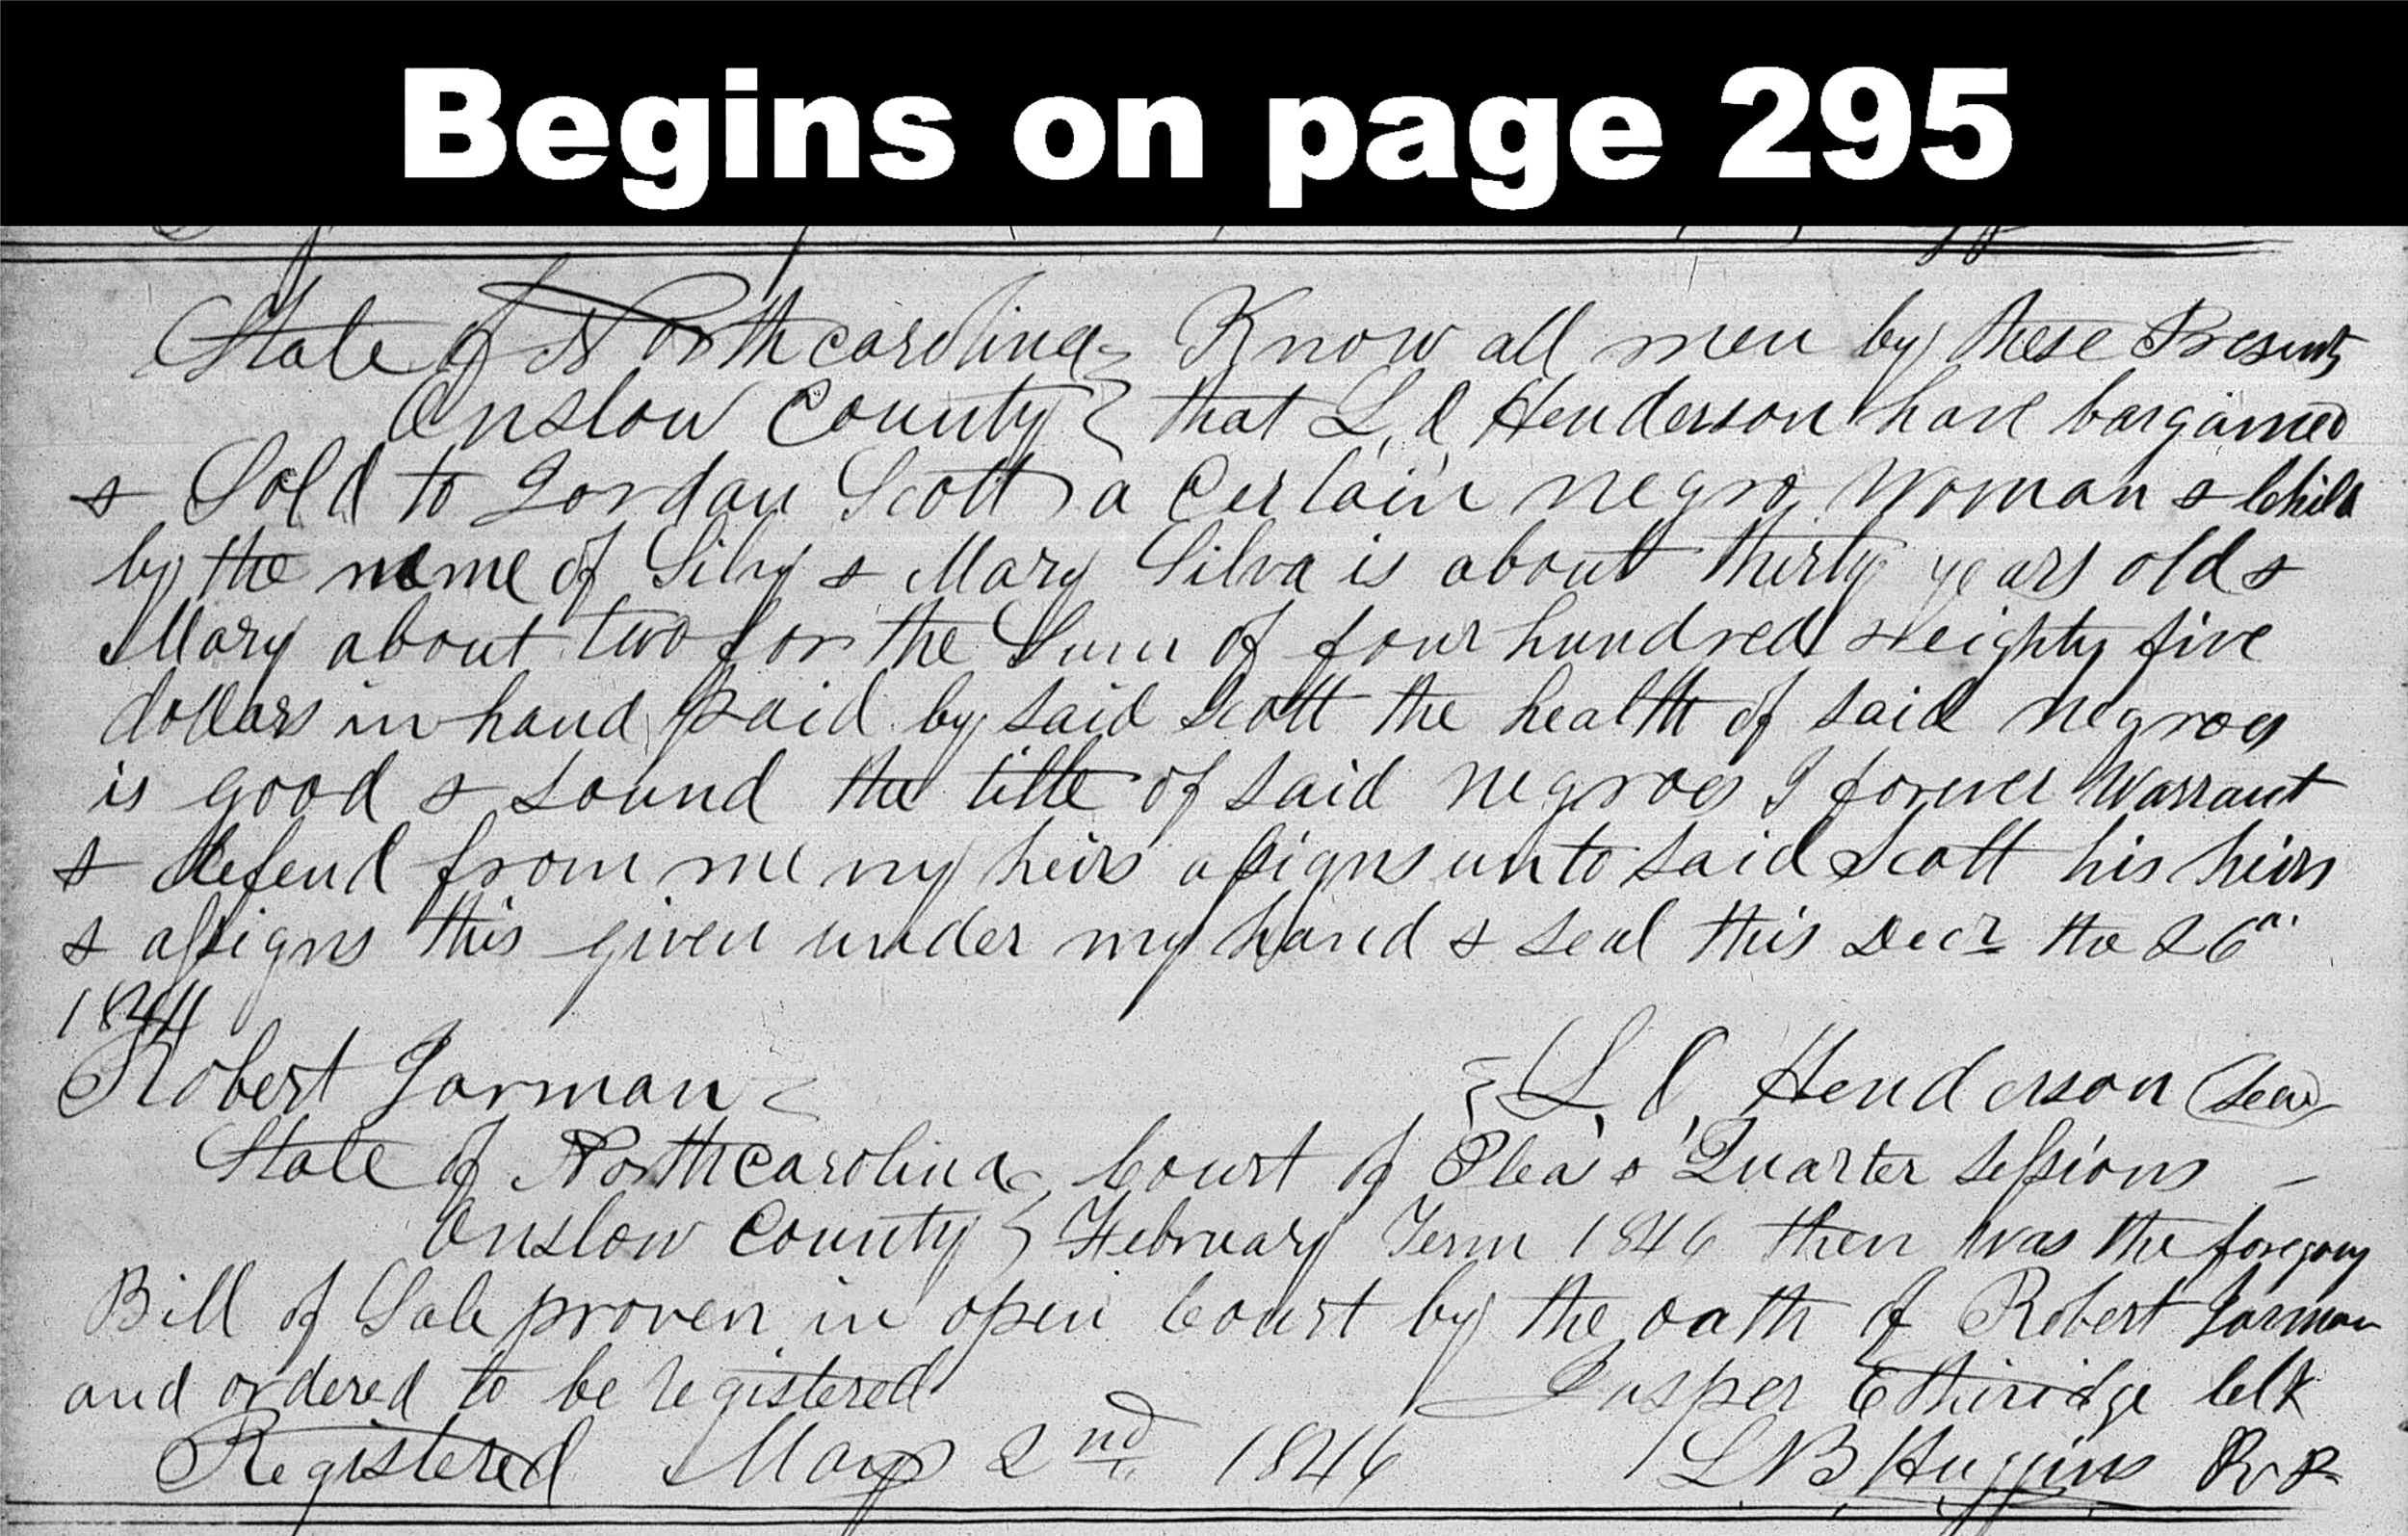 Begins on page 295
State of Northcarolina Know all men by these Presents
Onslow County } that L, d Henderson have bargained
& Sold to Jordan Scott a Certain negro Woman & Child
by the name of Silvy & Mary Silva is about thirty years old &
Mary about two for the Sum of four hundred & eighty five
dollars in hand paid by said Scott the health of said negroes
is good & sound the title of said negroes I forever Warrant
& defend from me my heirs assigns unto said Scott his heirs
& assigns this given under my hand & seal this Decr the 26th
1844
Robert Jarman } L. d. Henderson (Seal)
State of Northcarolina, Court of Plea's & Quarter Sessions –
Onslow County } February Term 1846 then was the foregoing
Bill of Sale proven in open Court by the oath of Robert Jarman
and ordered to be registered Jasper Etheridge Clk
Registered May 2nd 1846 L B Huggins